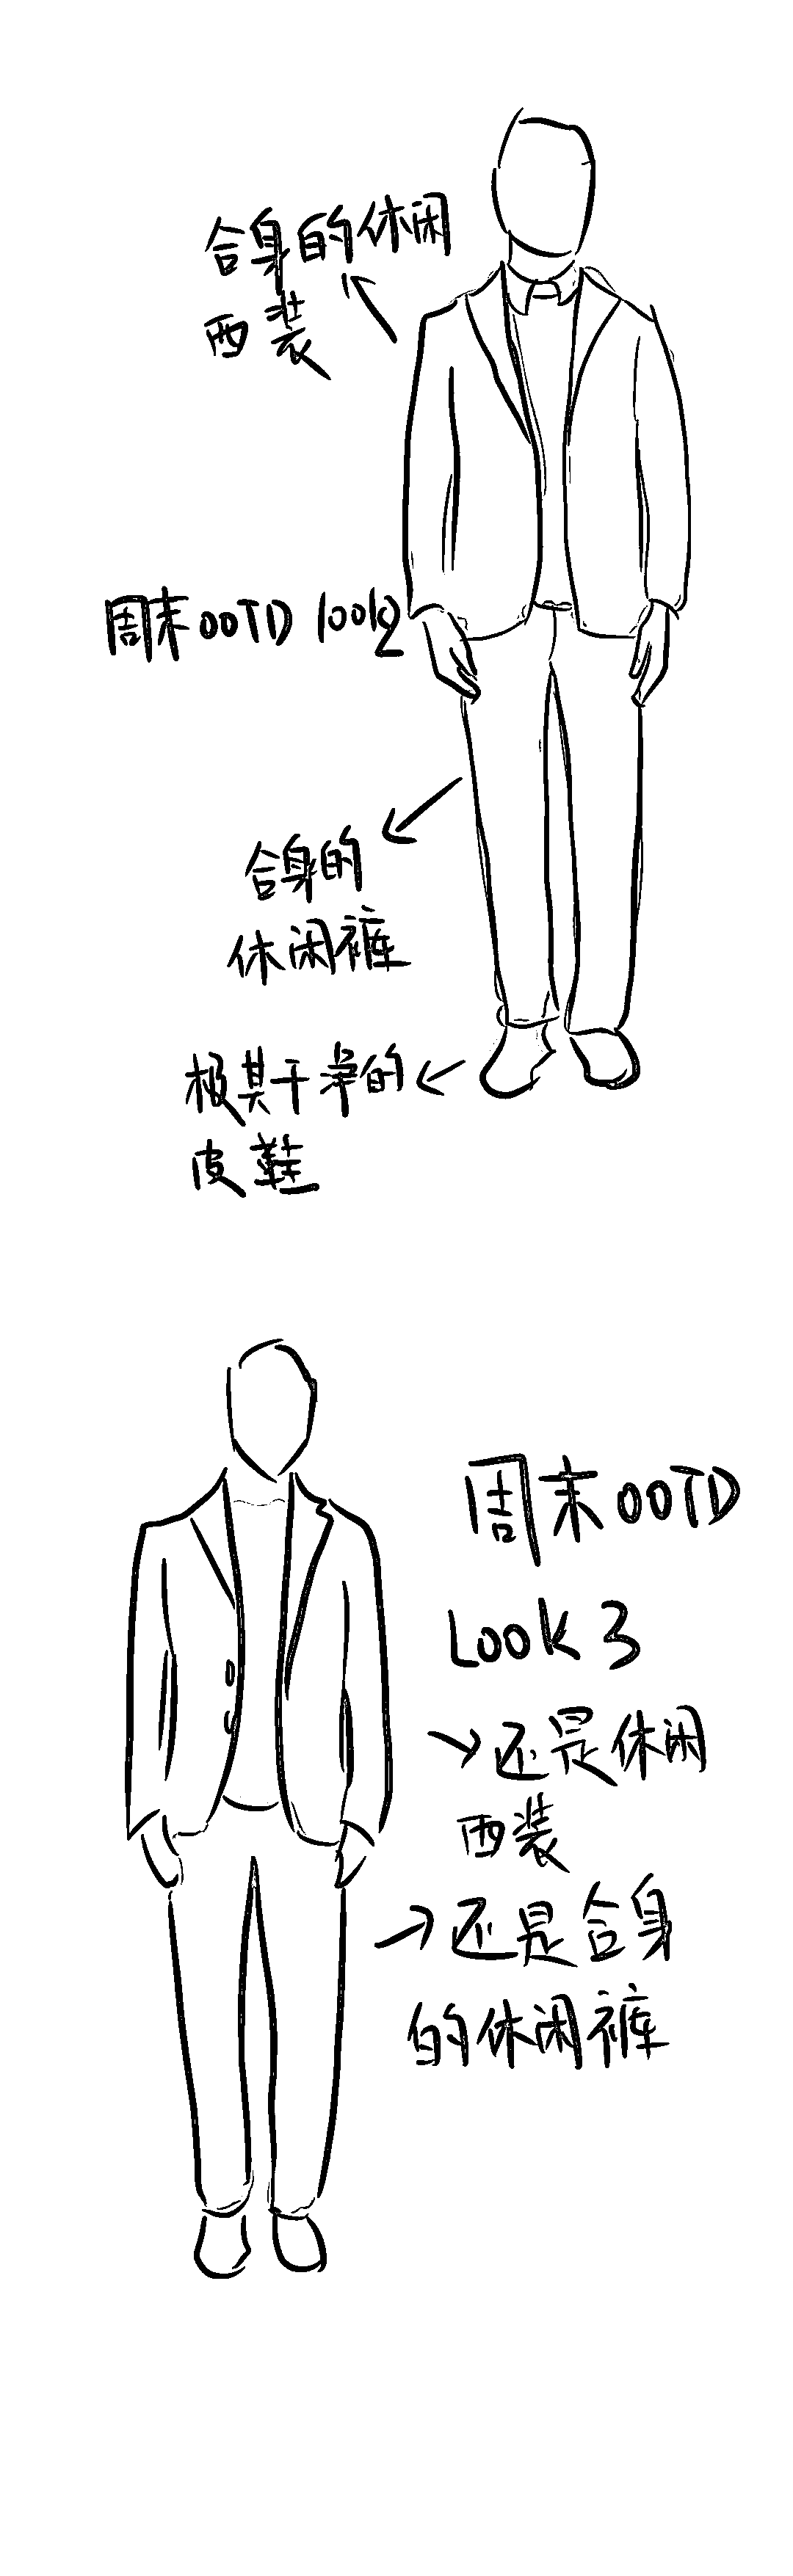 合身的休闲
西装
周末OOTD look2
合身的
休闲裤
极其干净的
皮鞋
周末OOTD
LOOK 3
还是休闲
西装
还是合身
的休闲裤